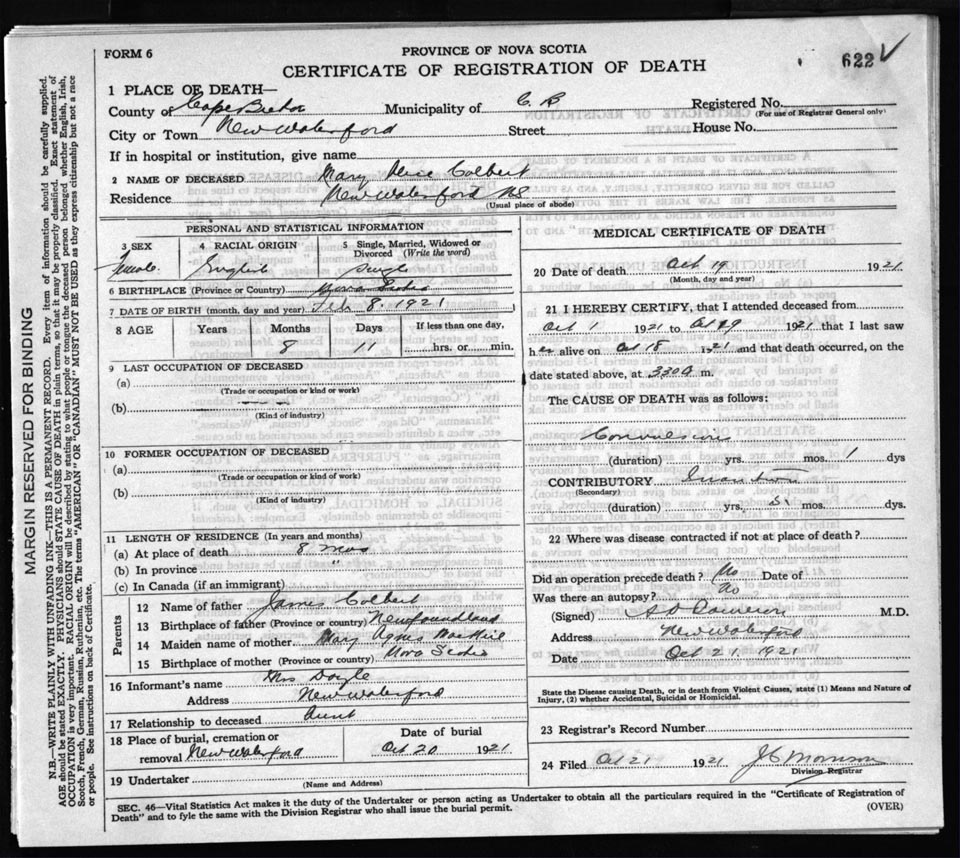 FORM 6
PROVINCE OF NOVA SCOTIA
622
CERTIFICATE OF REGISTRATION OF DEATH
1 PLACE OF DEATH—
County of Cape Breton Municipality of C. B Registered No.
(For use of Registrar General only)
City or Town New Waterford Street House No.
If in hospital or institution, give name
2 NAME OF DECEASED Mary Alice Colbert
Residence New Waterford NS
(Usual place of abode)
PERSONAL AND STATISTICAL INFORMATION
3 SEX 4 RACIAL ORIGIN 5 Single, Married, Widowed or Divorced (Write the word)
Female English Single
6 BIRTHPLACE (Province or Country) Nova Scotia
7 DATE OF BIRTH (month, day and year) Feb 8. 1921
8 AGE Years Months Days If less than one day,
8 11 hrs. or min.
9 LAST OCCUPATION OF DECEASED
(a)
(Trade or occupation or kind or work)
(b)
(Kind of industry)
10 FORMER OCCUPATION OF DECEASED
(a)
(Trade or occupation or kind or work)
(b)
(Kind of industry)
11 LENGTH OF RESIDENCE (In years and months)
(a) At place of death 8 mos
(b) In province "
(c) In Canada (if an immigrant)
Parents
12 Name of father James Colbert
13 Birthplace of father (Province or country) Newfoundland
14 Maiden name of mother Mary Agnes
15 Birthplace of mother (Province or country) Nova Scotia
16 Informant's name Mrs Doyle
Address New Waterford
17 Relationship to deceased Aunt
18 Place of burial, cremation or removal New Waterford Date of burial Oct 20 1921
19 Undertaker
(Name and Address)
MEDICAL CERTIFICATE OF DEATH
20 Date of death Oct 19 1921
(Month, day and year)
21 I HEREBY CERTIFY, that I attended deceased from
Oct 1 1921 to Oct 19 1921 that I last saw
her alive on Oct 18 1921 and that death occurred, on the
date stated above, at 330 a m.
The CAUSE OF DEATH was as follows:
Convulsions
(duration) yrs. mos. 1 dys
CONTRIBUTORY Inanition
(Secondary)
(duration) yrs. mos. dys.
22 Where was disease contracted if not at place of death?
Did an operation precede death? No Date of
Was there an autopsy? No
(Signed) Cameron M.D.
Address New Waterford
Date Oct 21 1921
State the Disease causing Death, or in death from Violent Causes, state (1) Means and Nature of
Injury, (2) whether Accidental, Suicidal or Homicidal.
23 Registrar's Record Number
24 Filed Oct 21 1921 J C Morrison
Division Registrar
SEC. 46—Vital Statistics Act makes it the duty of the Undertaker or person acting as Undertaker to obtain all the particulars required in the "Certificate of Registration of
Death" and to fyle the same with the Division Registrar who shall issue the burial permit.
(OVER)
MARGIN RESERVED FOR BINDING
N.B.—WRITE PLAINLY WITH UNFADING INK—THIS IS A PERMANENT RECORD. Every item of information should be carefully supplied.
AGE should be stated EXACTLY. PHYSICIANS should STATE CAUSE OF DEATH in plain terms, so that it may be properly classified. Exact statement of
OCCUPATION is very important. RACIAL ORIGIN will be described by stating to what people or tongue the deceased person belonged whether English, Irish,
Scotch, French, German, Russian, Ruthenian, etc. The terms "AMERICAN" OR "CANADIAN" MUST NOT BE USED as they express citizenship but not a race
or people. See instructions on back of Certificate.